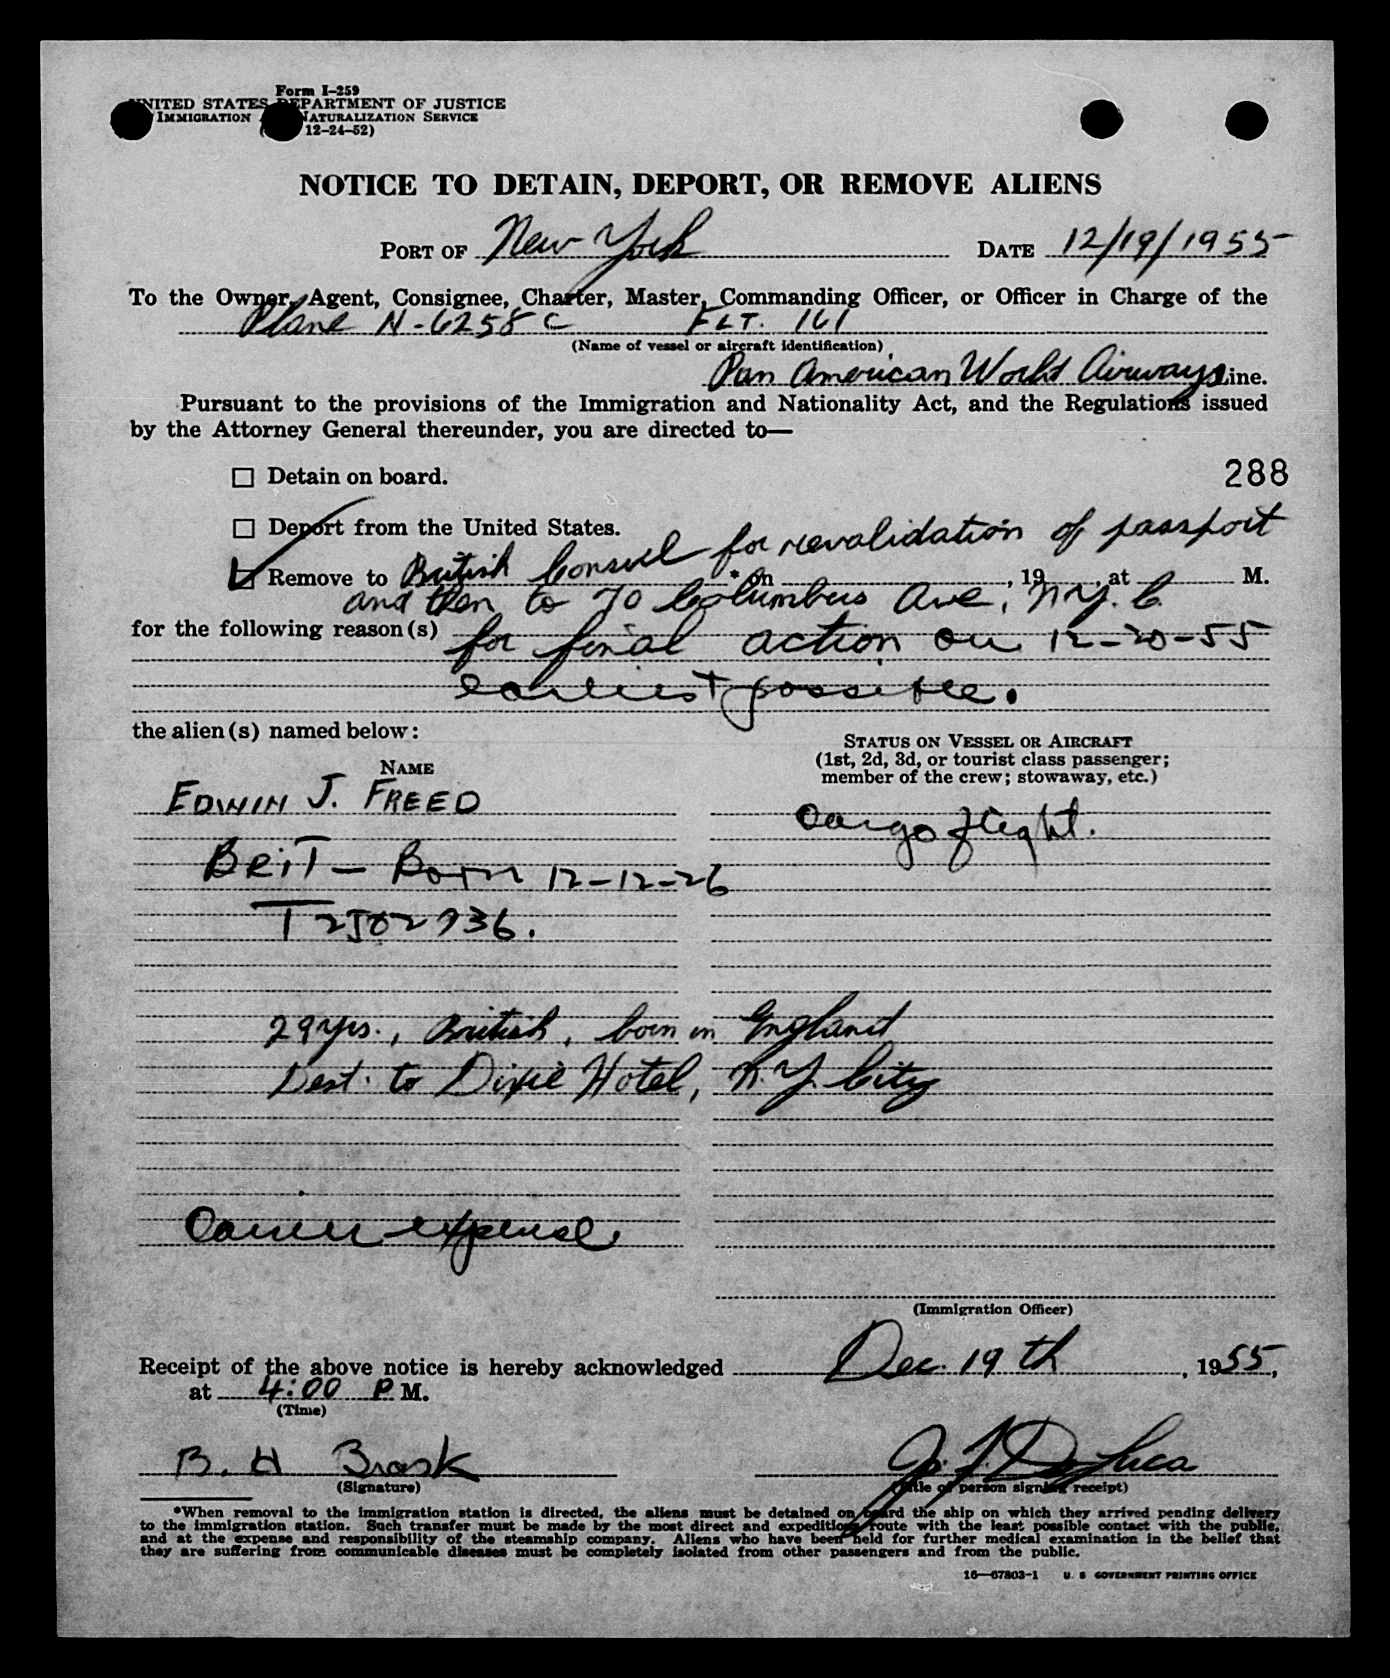 Form I-259
UNITED STATES DEPARTMENT OF JUSTICE
IMMIGRATION NATURALIZATION SERVICE
12-24-52)
NOTICE TO DETAIN, DEPORT, OR REMOVE ALIENS
PORT OF New York DATE 12/19/1955
To the Owner, Agent, Consignee, Charter, Master, Commanding Officer, or Officer in Charge of the
Plane N-6258C FLT. 161
(Name of vessel or aircraft identification)
Pan American World Airways Line.
Pursuant to the provisions of the Immigration and Nationality Act, and the Regulations issued
by the Attorney General thereunder, you are directed to—
☐ Detain on board.
288
☐ Deport from the United States.
☑ Remove to British Consul for revalidation of passport * on , 19 , at M.
and then to 70 Columbus Ave, N.Y.C.
for the following reason(s) for final action on 12-20-55
earliest possible.
the alien(s) named below:
STATUS ON VESSEL OR AIRCRAFT
(1st, 2d, 3d, or tourist class passenger;
member of the crew; stowaway, etc.)
NAME
EDWIN J. FREED
Cargo flight.
BRIT - Born 12-12-26
T2502936.
29 yrs., British, born in England
Dest. to Dixie Hotel, N.Y. City
Carrier expense
(Immigration Officer)
Receipt of the above notice is hereby acknowledged Dec. 19th, 1955,
at 4:00 P M.
(Time)
B. H Brask J. F. DeLuca
(Signature) (Title of person signing receipt)
*When removal to the immigration station is directed, the aliens must be detained on board the ship on which they arrived pending delivery
to the immigration station. Such transfer must be made by the most direct and expeditious route with the least possible contact with the public,
and at the expense and responsibility of the steamship company. Aliens who have been held for further medical examination in the belief that
they are suffering from communicable diseases must be completely isolated from other passengers and from the public.
16—67803-1 U. S GOVERNMENT PRINTING OFFICE